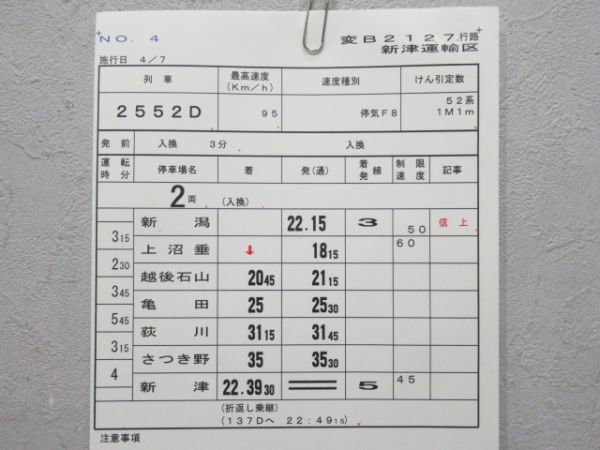 NO. 4 変B2127行路
新津運輸区
施行日 4/7
列車 最高速度(Km/h) 速度種別 けん引定数
2552D 95 停気F8 52系 1M1m
発前 入換 3分 入換
運転時分 停車場名 着 発(通) 着発線 制限速度 記事
2両 (入換)
新潟 22.15 3 50 信上
315 上沼垂 ↓ 1815 60
230 越後石山 2045 2115
345 亀田 25 2530
545 荻川 3115 3145
315 さつき野 35 3530
4 新津 22.3930 5 45
(折返し乗継)
(137Dへ 22:4915)
注意事項